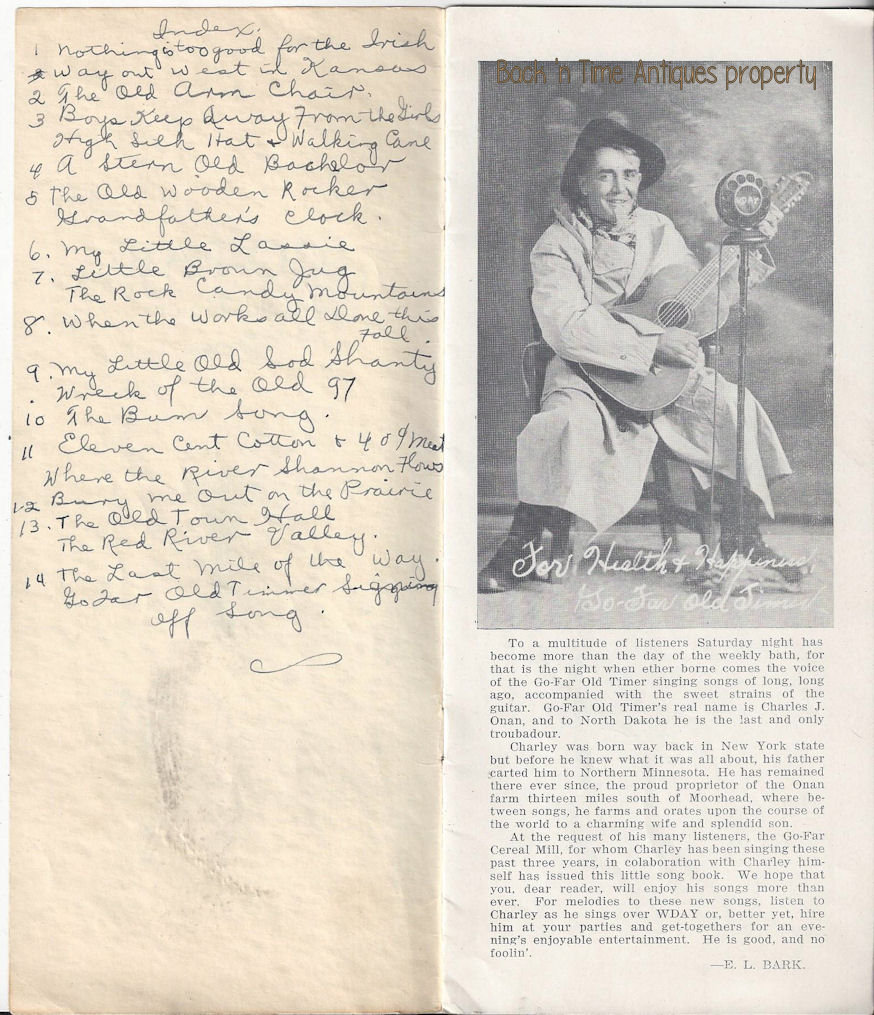 Index.
1 Nothing is too good for the Irish
Way out West in Kansas
2 The Old Arm Chair.
3 Boys Keep Away From the Girls
High Silk Hat & Walking Cane
4 A Stern Old Bachelor
5 The Old Wooden Rocker
Grandfather's Clock.
6. My Little Lassie
7. Little Brown Jug
The Rock Candy Mountains
8. When the Works all Done this
Fall.
9. My Little Old Sod Shanty
. Wreck of the Old 97
10 The Bum Song.
11 Eleven Cent Cotton & 40¢ Meat
Where the River Shannon Flows
12 Bury Me Out on the Prairie
13. The Old Town Hall
The Red River Valley.
14 The Last Mile of the Way.
Go Far Old Timmer Signing
off Song.
Back 'n Time Antiques property
WDAY
For Health & Happiness
Go-Far Old Timer
To a multitude of listeners Saturday night has
become more than the day of the weekly bath, for
that is the night when ether borne comes the voice
of the Go-Far Old Timer singing songs of long, long
ago, accompanied with the sweet strains of the
guitar. Go-Far Old Timer's real name is Charles J.
Onan, and to North Dakota he is the last and only
troubadour.
Charley was born way back in New York state
but before he knew what it was all about, his father
carted him to Northern Minnesota. He has remained
there ever since, the proud proprietor of the Onan
farm thirteen miles south of Moorhead, where be-
tween songs, he farms and orates upon the course of
the world to a charming wife and splendid son.
At the request of his many listeners, the Go-Far
Cereal Mill, for whom Charley has been singing these
past three years, in colaboration with Charley him-
self has issued this little song book. We hope that
you, dear reader, will enjoy his songs more than
ever. For melodies to these new songs, listen to
Charley as he sings over WDAY or, better yet, hire
him at your parties and get-togethers for an eve-
ning's enjoyable entertainment. He is good, and no
foolin'.
—E. L. BARK.